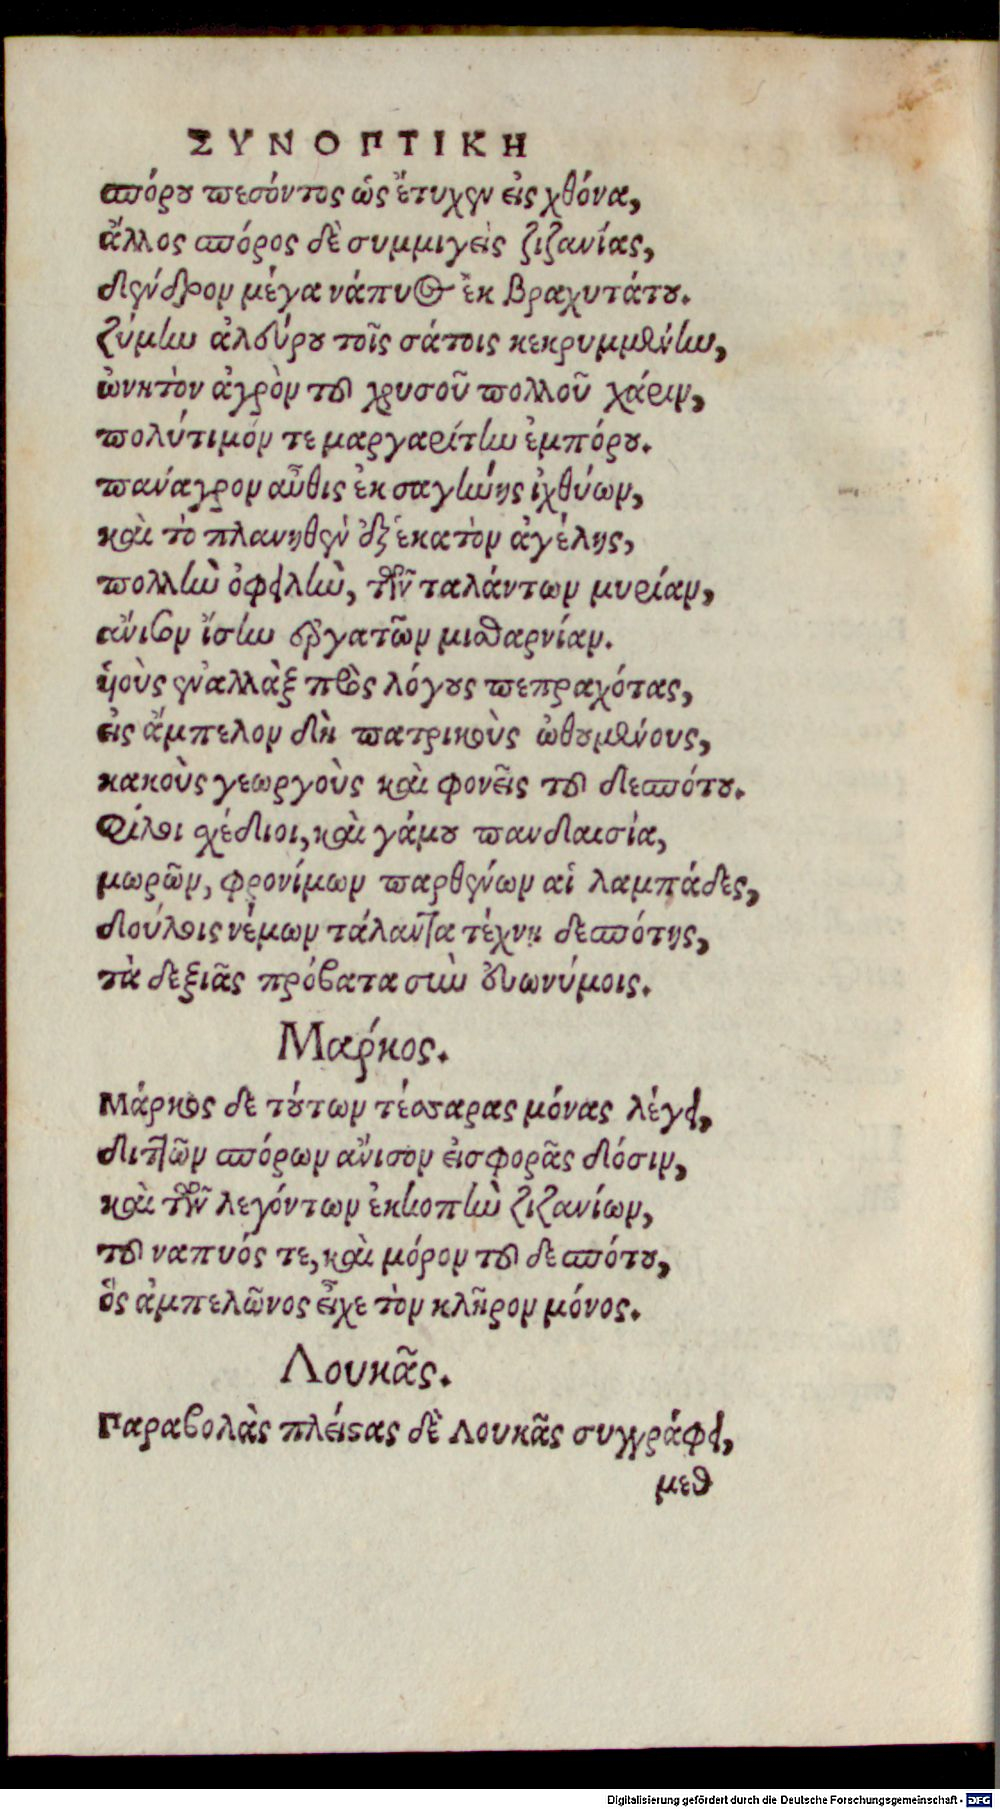 ΣΥΝΟΠΤΙΚΗ
σπόρου πεσόντος ὡς ἔτυχεν εἰς χθόνα,
ἄλλος σπόρος δὲ συμμιγεὶς ζιζανίας,
δένδρον μέγα νάπυος ἐκ βραχυτάτου.
ζύμην ἀλεύρου τοῖς σάτοις κεκρυμμένην,
ὠνητὸν ἀγρὸν τοῦ χρυσοῦ πολλοῦ χάριν,
πολύτιμόν τε μαργαρίτην ἐμπόρου.
πανάγρον αὖθις ἐκ σαγήνης ἰχθύων,
καὶ τὸ πλανηθὲν ἐξ ἑκατὸν ἀγέλης,
πολλὴν ὀφειλὴν, τῶν ταλάντων μυρίαν,
ἄνισον ἴσην ἐργατῶν μισθαρνίαν.
ὑοὺς ἐναλλὰξ πρὸς λόγους πεπραχότας,
εἰς ἄμπελον δὴ πατρικοὺς ὠθουμένους,
κακοὺς γεωργοὺς καὶ φονεῖς τοῦ δεσπότου.
Φίλοι σχέδιοι, καὶ γάμου πανδαισία,
μωρῶν, φρονίμων παρθένων αἱ λαμπάδες,
δούλοις νέμων τάλαντα τέχνη δεσπότης,
τὰ δεξιᾶς πρόβατα σὺν εὐωνύμοις.
Μαρκος.
Μάρκος δε τούτων τέσσαρας μόνας λέγει,
διττῶν σπόρων ἄνισον εἰσφορᾶς δόσιν,
καὶ τῶν λεγόντων ἐκκοπὴν ζιζανίων,
τοῦ ναπυός τε, καὶ μόρον τοῦ δεσπότου,
ὃς ἀμπελῶνος εἶχε τὸν κλῆρον μόνος.
Λουκᾶς.
Παραβολὰς πλείστας δὲ Λουκᾶς συγγράφει,
μεθ
Digitalisierung gefördert durch die Deutsche Forschungsgemeinschaft - DFG